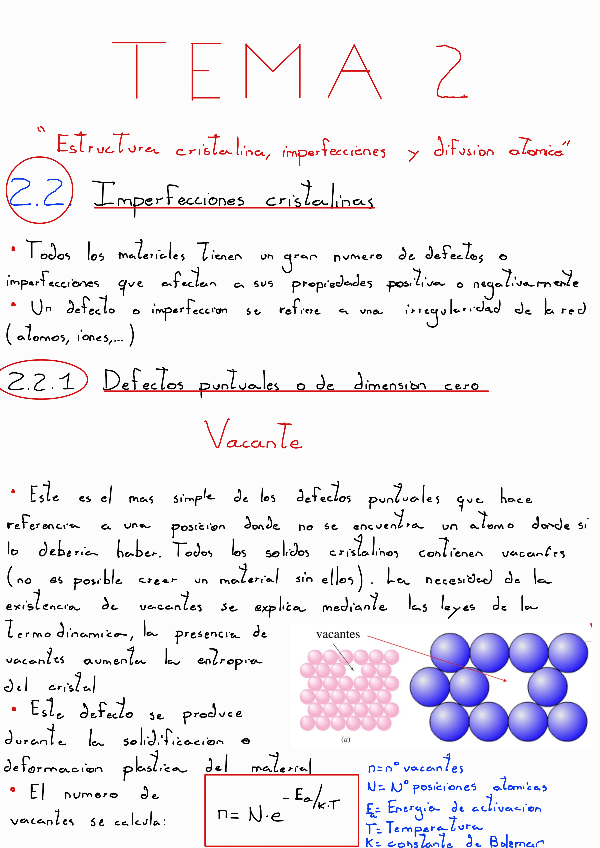 TEMA 2
"Estructura cristalina, imperfecciones y difusion atomica"
2.2. Imperfecciones cristalinas
• Todos los materiales tienen un gran numero de defectos o
imperfecciones que afectan a sus propiedades positiva o negativamente
• Un defecto o imperfeccion se refiere a una irregularidad de la red
(atomos, iones,...)
2.2.1 Defectos puntuales o de dimension cero
Vacante
• Este es el mas simple de los defectos puntuales que hace
referencia a una posicion donde no se encuentra un atomo donde si
lo deberia haber. Todos los solidos cristalinos contienen vacantes
(no es posible crear un material sin ellos). La necesidad de la
existencia de vacantes se explica mediante las leyes de la
Termodinamica, la presencia de
vacantes aumenta la entropia
del cristal
vacantes
(a)
• Este defecto se produce
durante la solidificacion o
deformacion plastica del material
• El numero de
vacantes se calcula:
n = N·e^-Ea/K·T
n= nº vacantes
N= Nº posiciones atomicas
Ea= Energia de activacion
T= Temperatura
K= constante de Bolemar